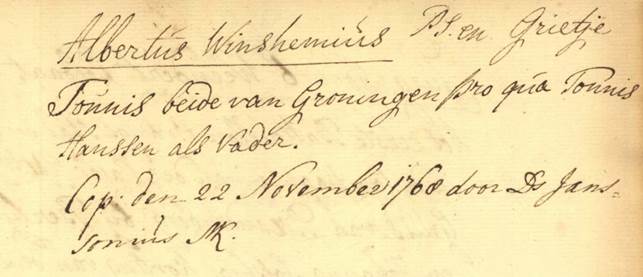 Albertus Winshemius PS. en Grietje
Tonnis beide van Groningen pro qua Tonnis
Hanssen als Vader.
Cop. den 22 November 1768 door Ds Jans=
sonius MK.